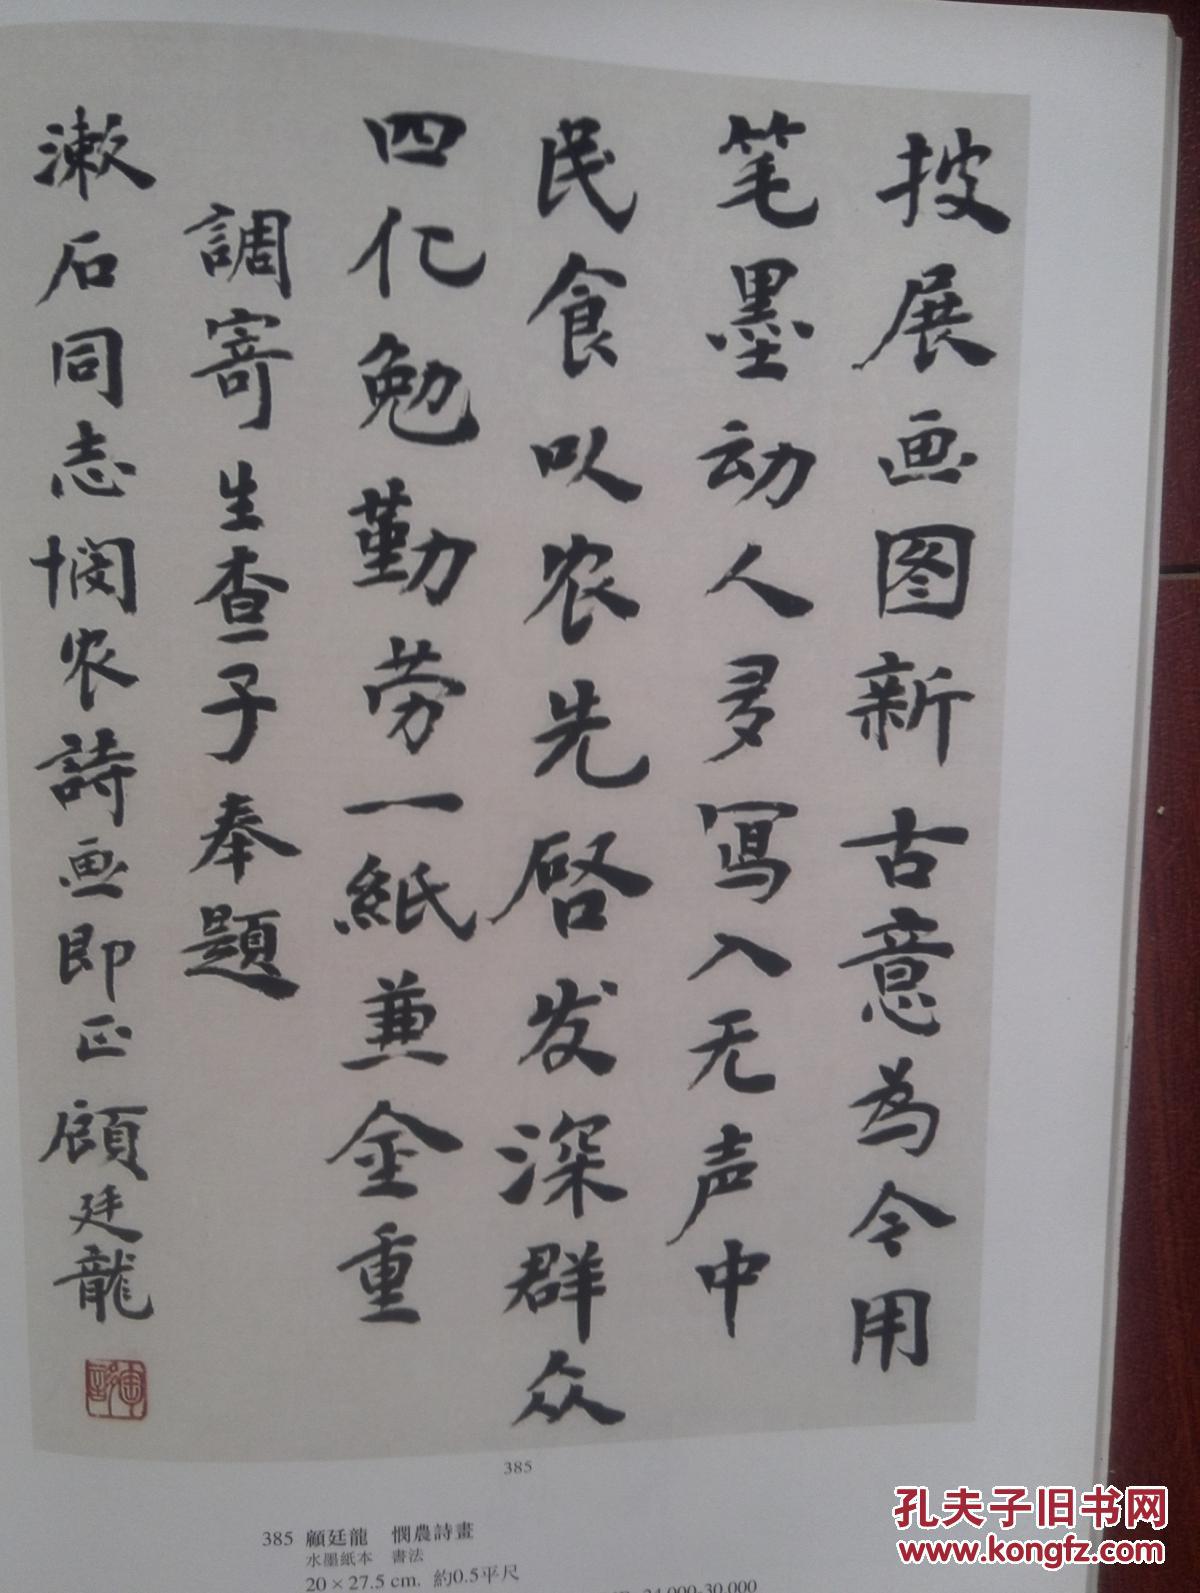 披展画图新古意为今用
笔墨动人多写入无声中
民食以农先啓发深群众
四化勉勤劳一紙兼金重
調寄生查子奉題
漱石同志悯农詩画即正顧廷龍
385
385 顧廷龍 憫農詩畫
水墨紙本 書法
20×27.5 cm. 約0.5平尺
24,000-30,000
孔夫子旧书网
www.kongfz.com